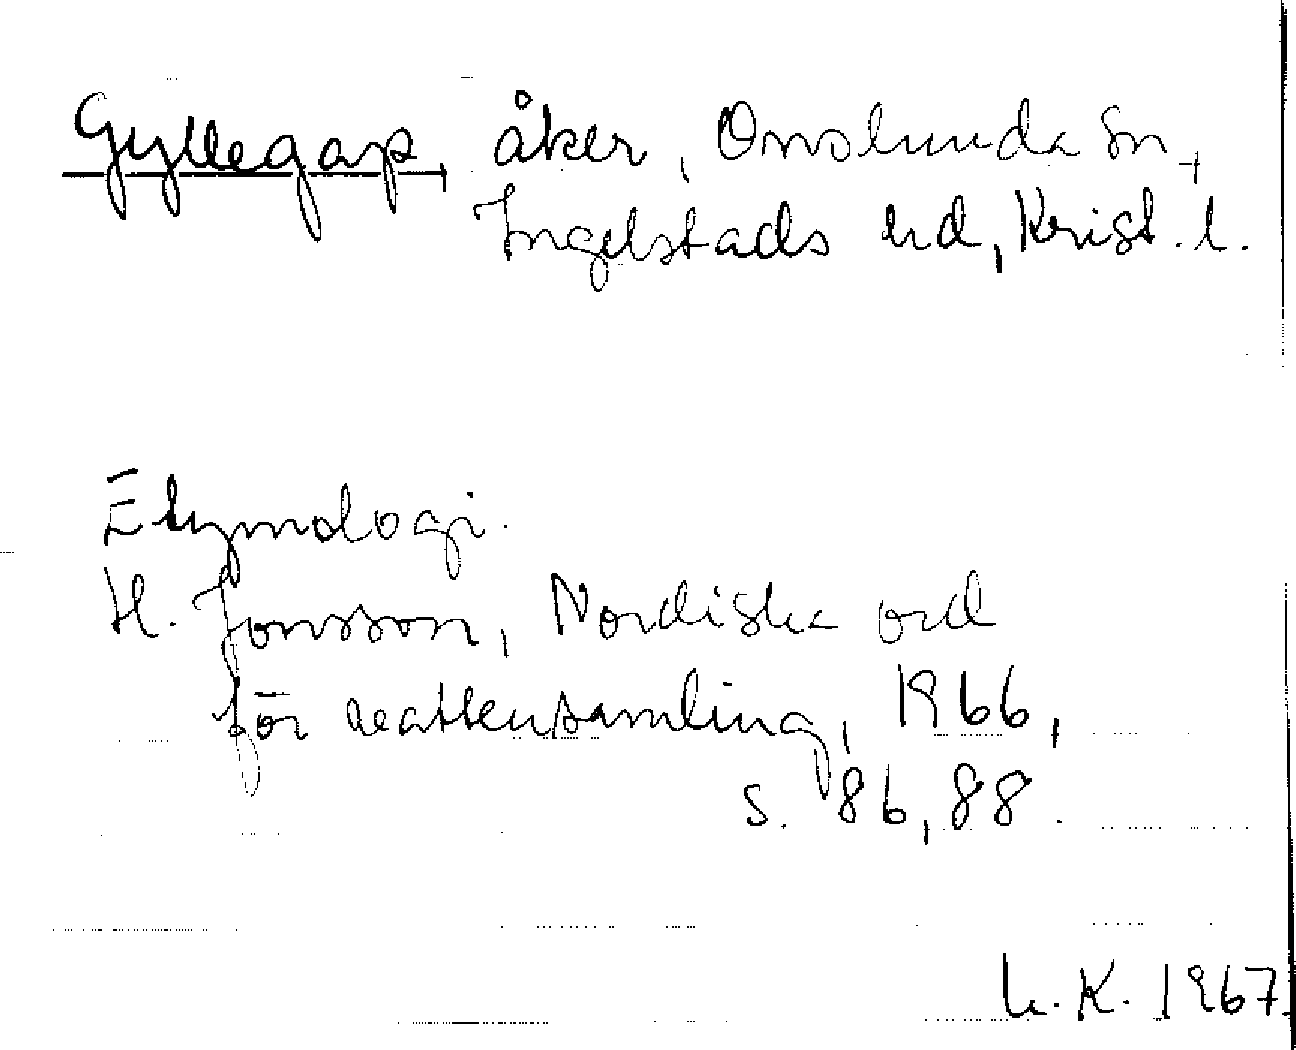 Gyllegap, åker, Onslunda sn,
Ingelstads hd, Krist. l.
Etymologi.
H. Jonsson, Nordiska ord
för vattensamling, 1966,
s. 86, 88.
L. K. 1967.